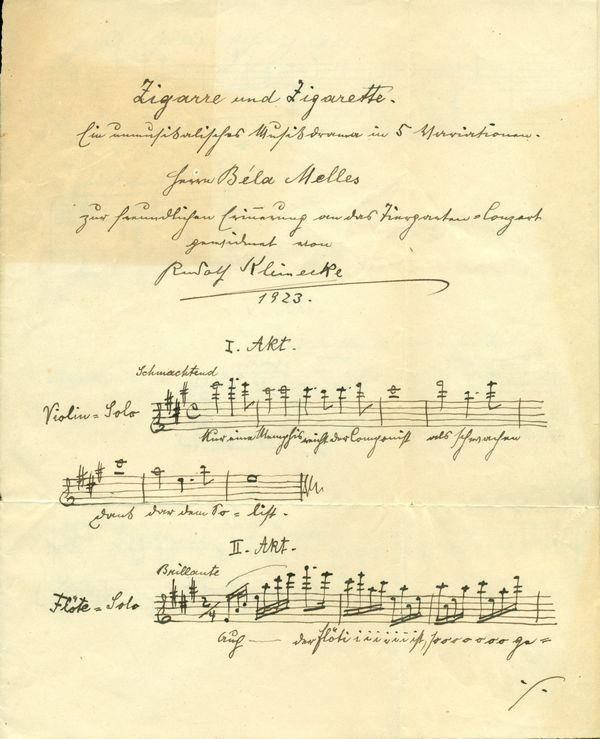 Zigarre und Zigarette.
Ein unmusikalisches Musikdrama in 5 Variationen.
Herrn Béla Melles
zur freundlichen Erinnerung an das Tiergarten-Conzert
gewidmet von
Rudolf Klinecke
1923.
I. Akt.
Schmachtend
Violin-Solo
Nur eine Memphis reicht der Componist als schwachen
Dank dar dem So-list.
II. Akt.
Brillante
Flöte-Solo
Auch — der Flöti i i i i i i ist, so o o o o o o ge-